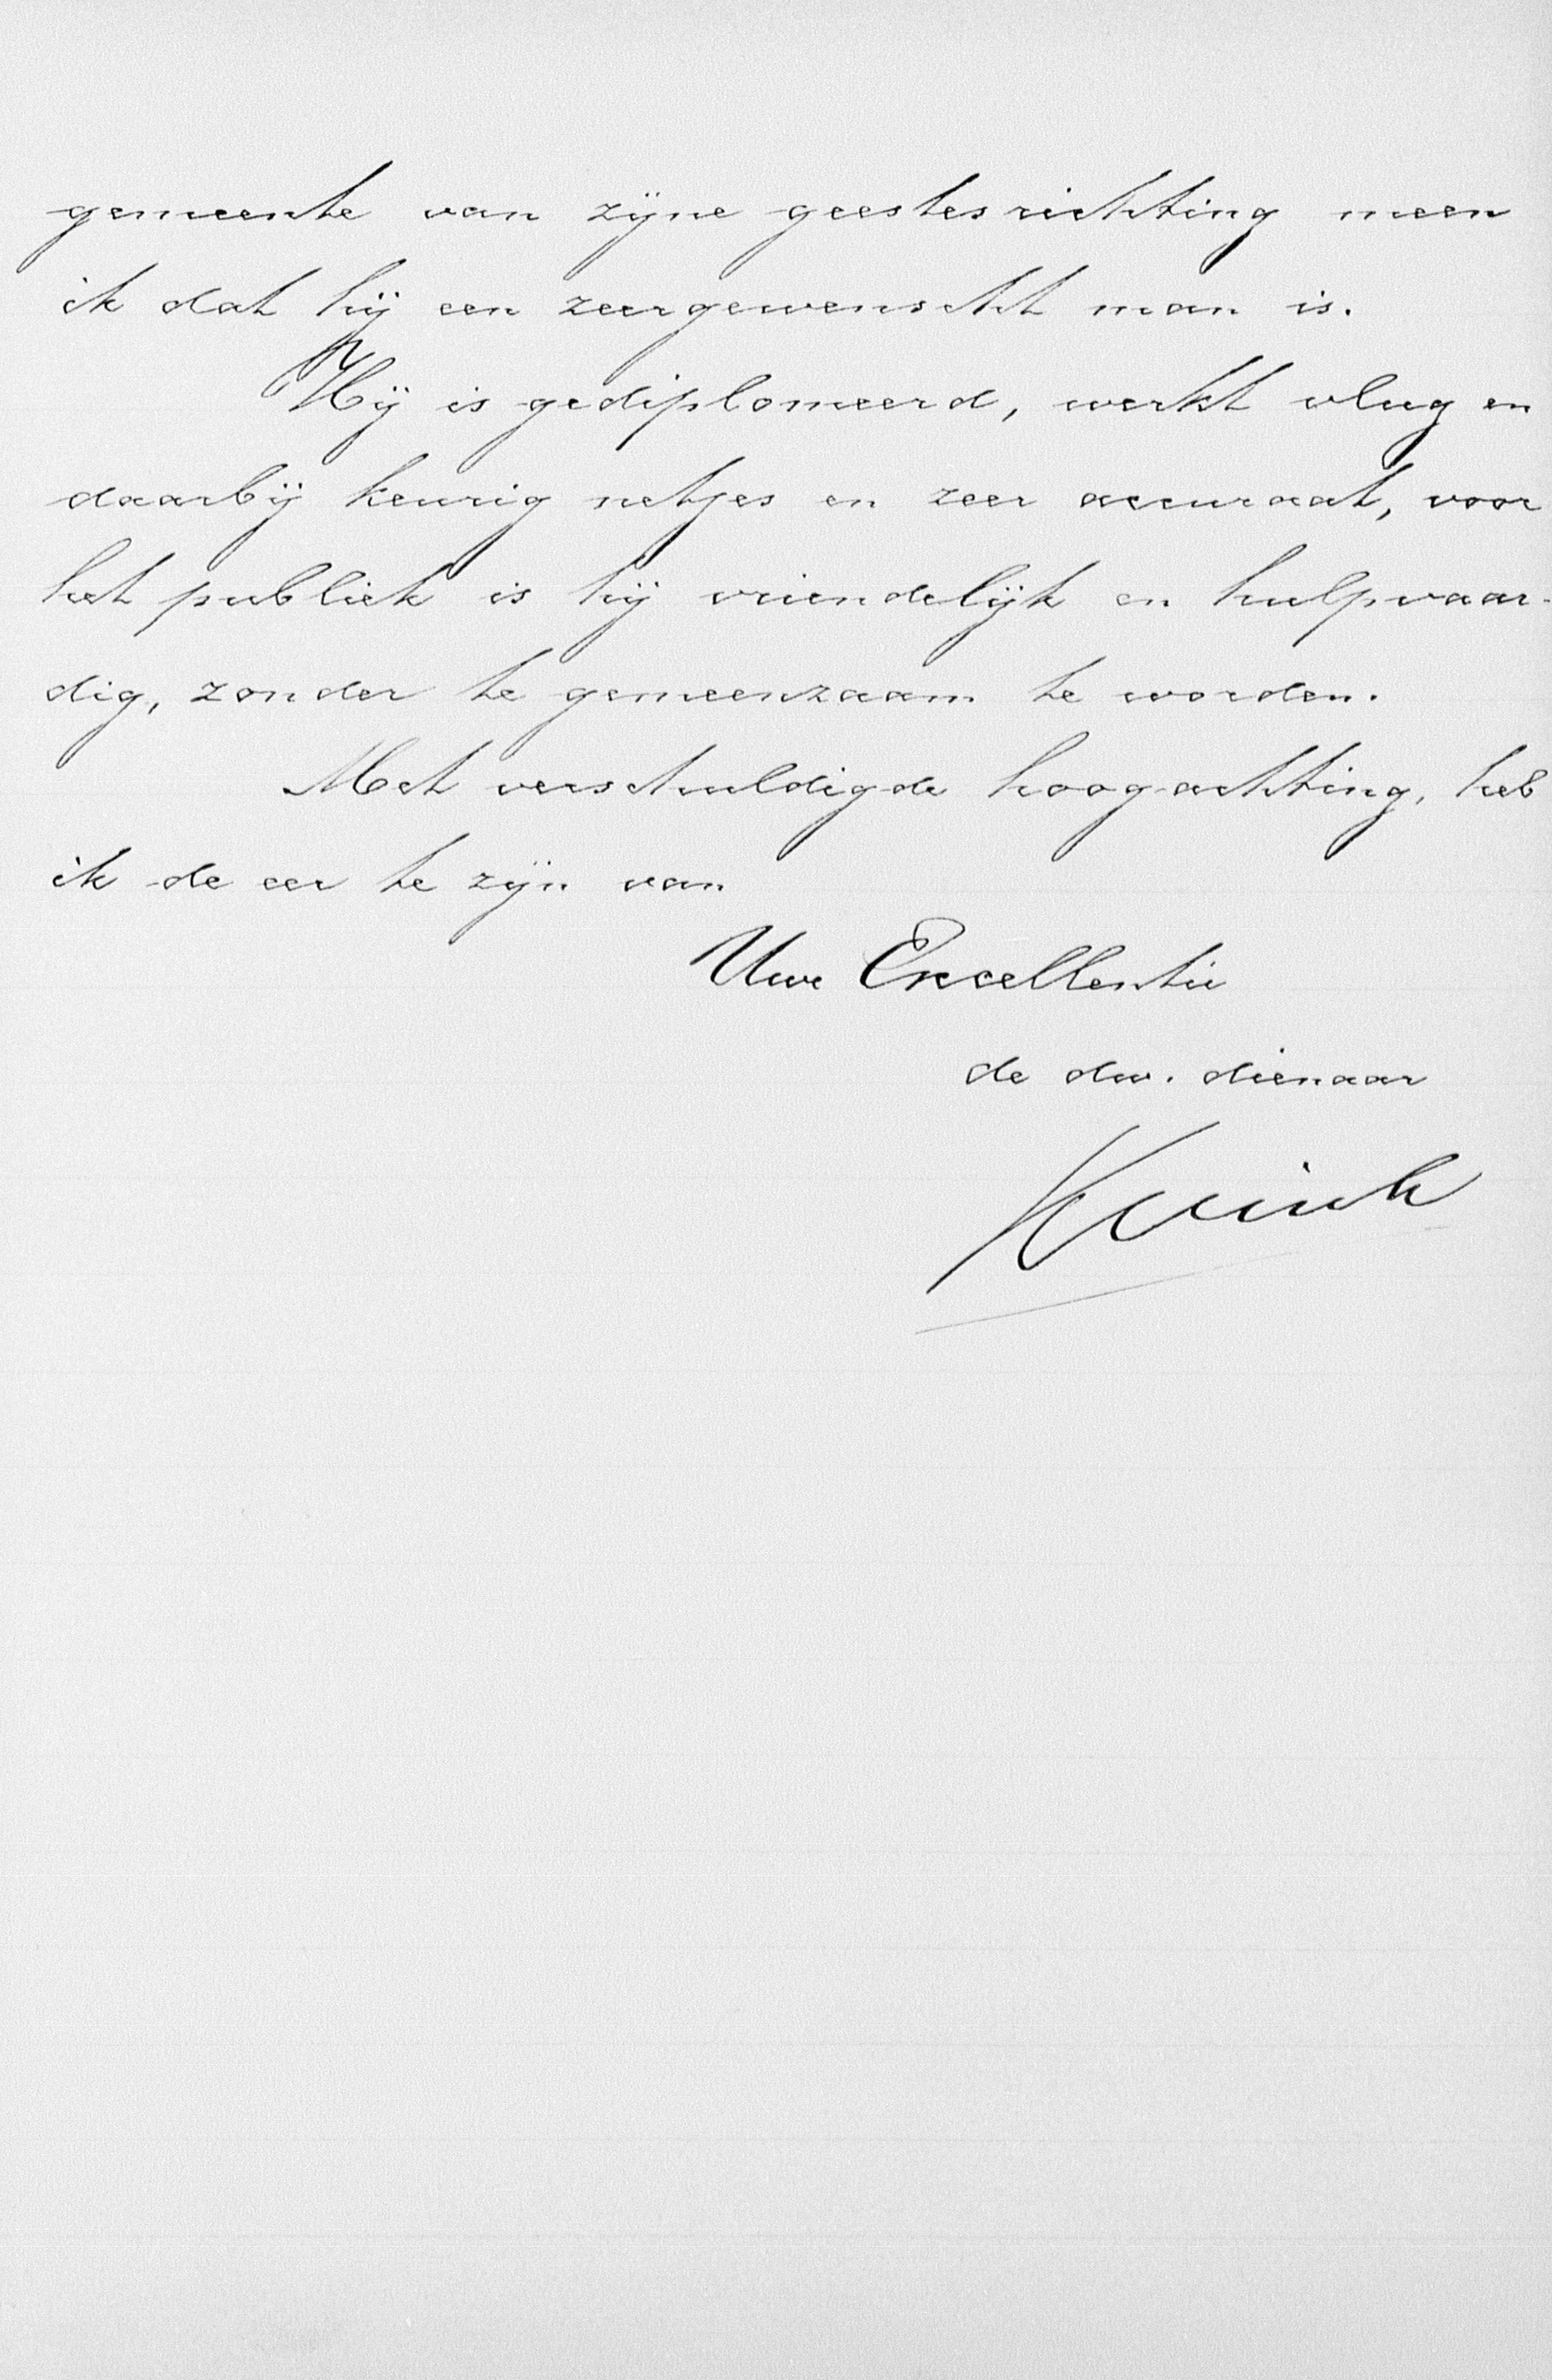 gemeente van zijne geestesrichting meen
ik dat hij een zeer gewenscht man is.
Hij is gediplomeerd, werkt vlug en
daarbij keurig netjes en zeer accuraat, voor
het publiek is hij vriendelijk en hulpvaar-
dig, zonder te gemeenzaam te worden.
Met verschuldigde hoogachting, heb
ik de eer te zijn van
Uwe Excellentie
de dw. dienaar